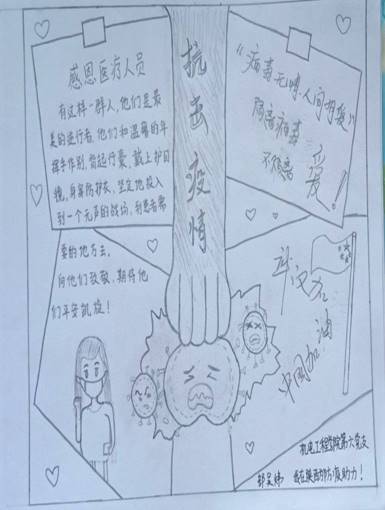 感恩医疗人员
有这样一群人,他们是最
美的逆行者,他们和温馨的年
挥手作别,背起行囊,戴上护目
镜,身穿防护衣,坚定地投入
到一个无声的战场,到患者需
要的地方去。
向他们致敬,期待他
们平安凯旋!
抗击疫情
“病毒无情,人间有爱”
隔离病毒
不隔离
爱!
武汉加油
中国加油
机电工程学院第六党支
我在陕西防疫助力!